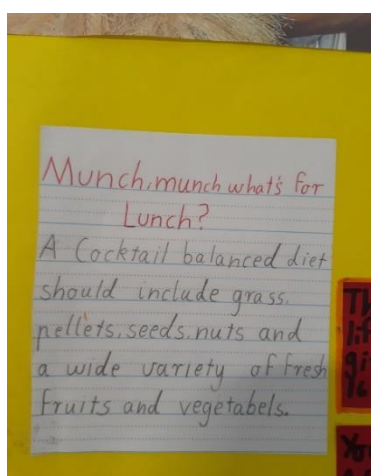 Munch, munch what's for
Lunch?
A Cocktail balanced diet
should include grass,
pellets, seeds, nuts and
a wide variety of fresh
fruits and vegetabels.